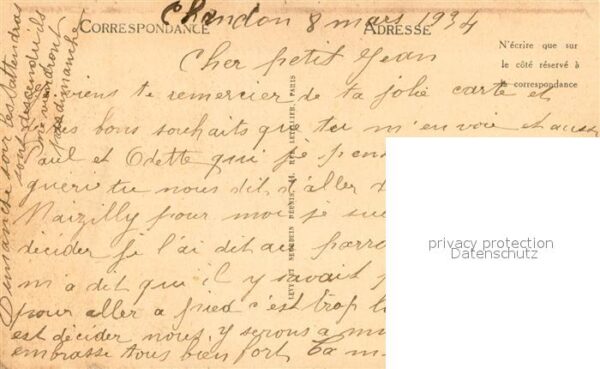 Chandon 8 mars 1934
CORRESPONDANCE
ADRESSE
N'écrire que sur
le côté réservé à
la correspondance
Cher petit Jean
viens te remercier de ta jolie carte et
bons souhaits que tu m'envoie et aussi
Paul et Odette qui je pens
guerie tu nous dit d'aller
Maizilly pour moi je sui
décider je l'ai dit au parra
m'a dit qu'il y avait
pour aller a pied c'est trop l
est décider nous y serons a mi
embrasse tous bien fort Ta m
Dimanche soir les attendras
sont descendu ils
viendront
pas dimanche
LEVY ET NEURDEIN RÉUNIS, 44, RUE LETELLIER, PARIS
privacy protection
Datenschutz